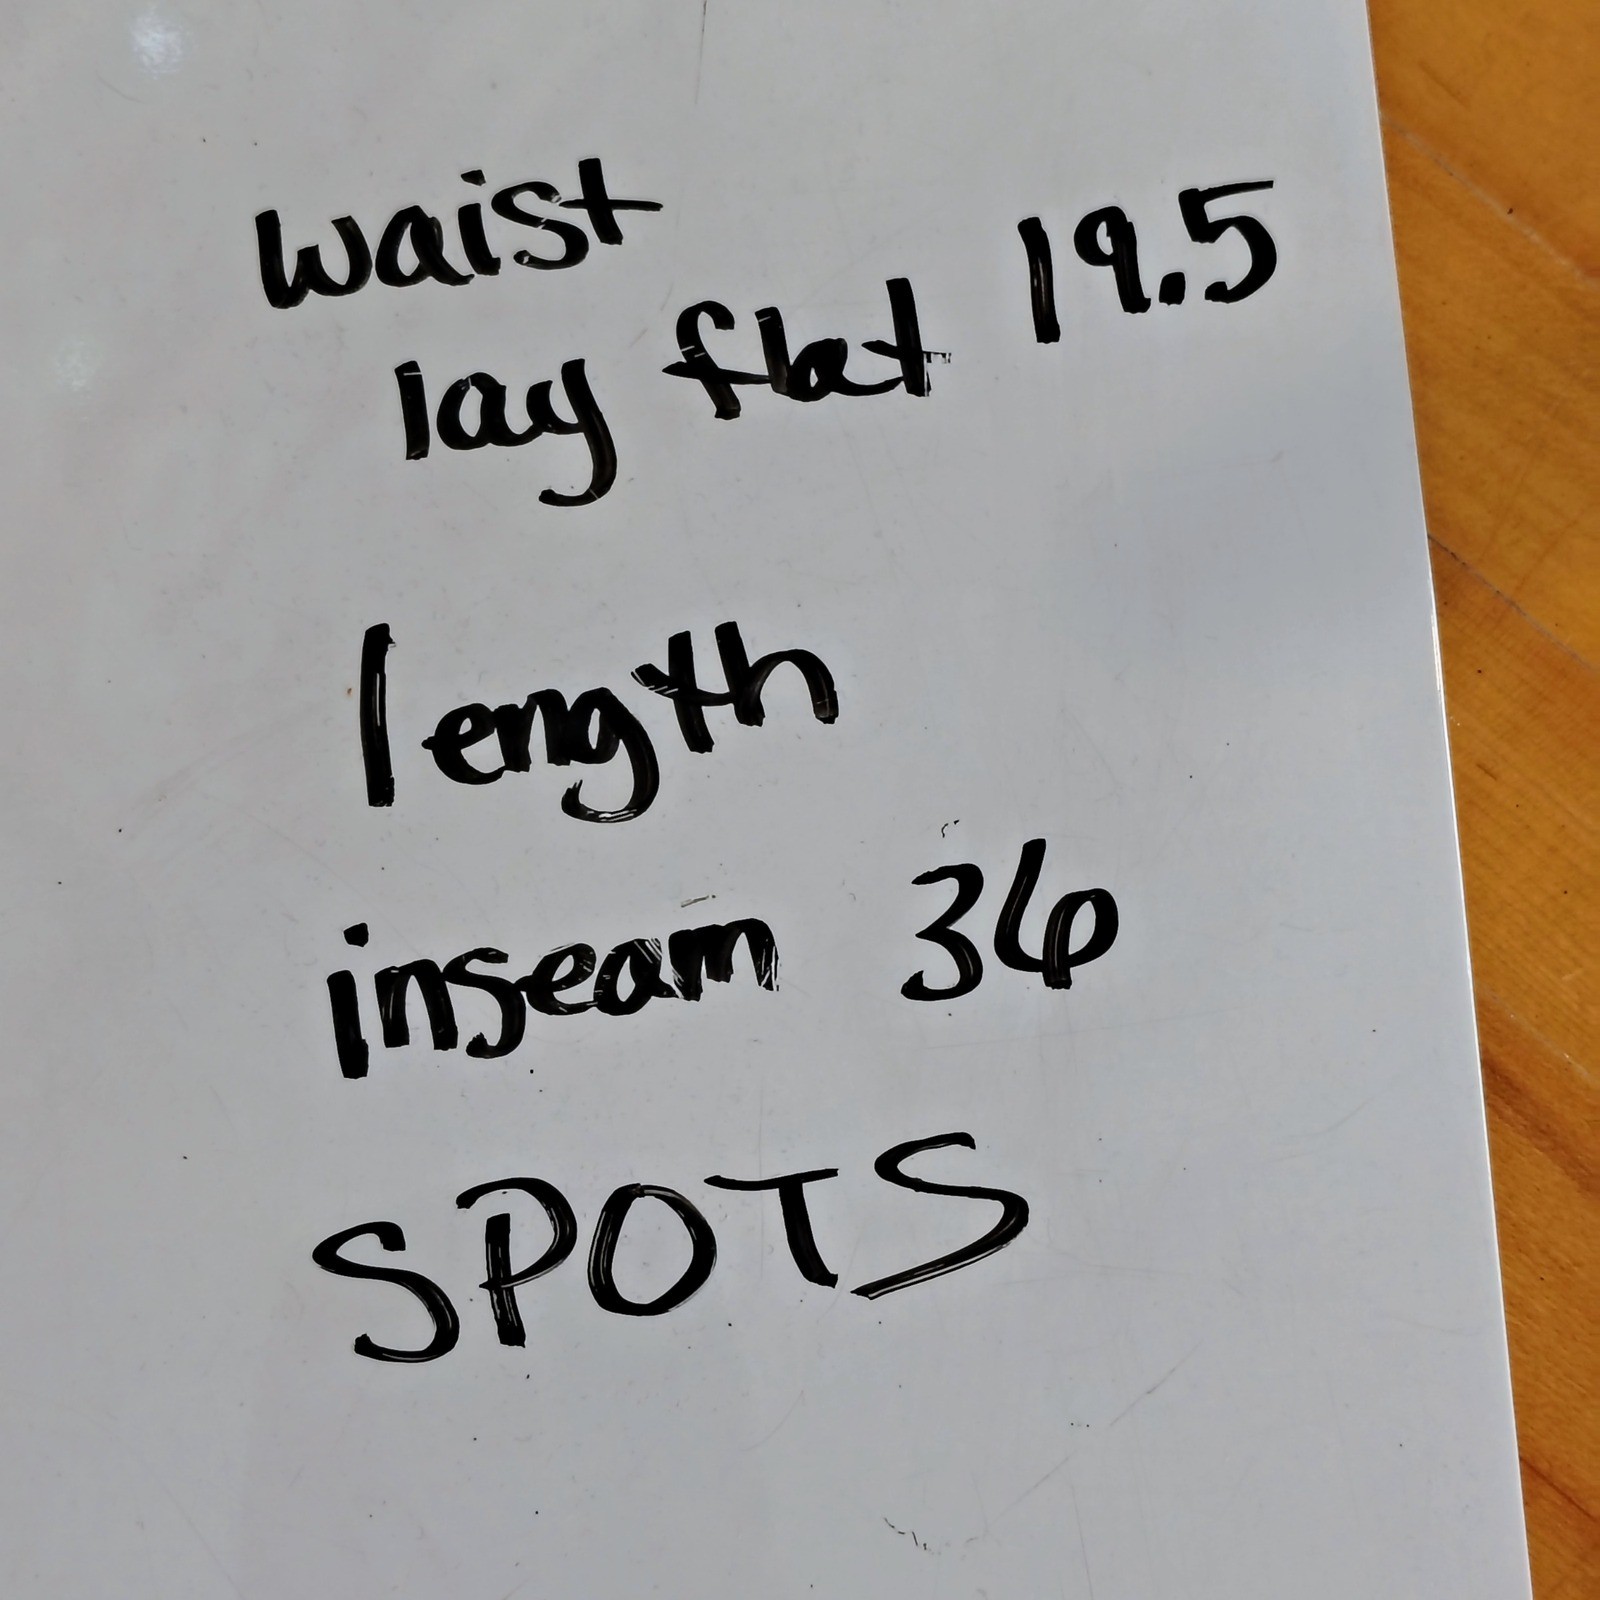 waist
lay flat 19.5
length
inseam 36
SPOTS